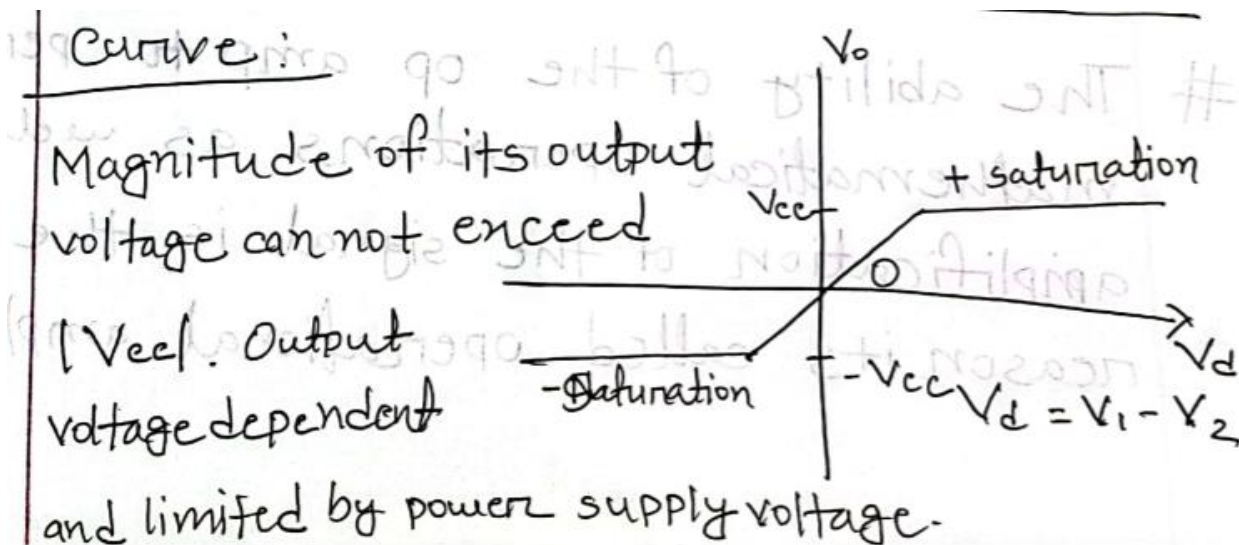 Curve:
Magnitude of its output
voltage can not exceed
|Vcc|. Output
voltage dependent
and limited by power supply voltage.
Vo
+ saturation
Vcc
O
Vd
-Saturation
-Vcc
Vd = V1 - V2